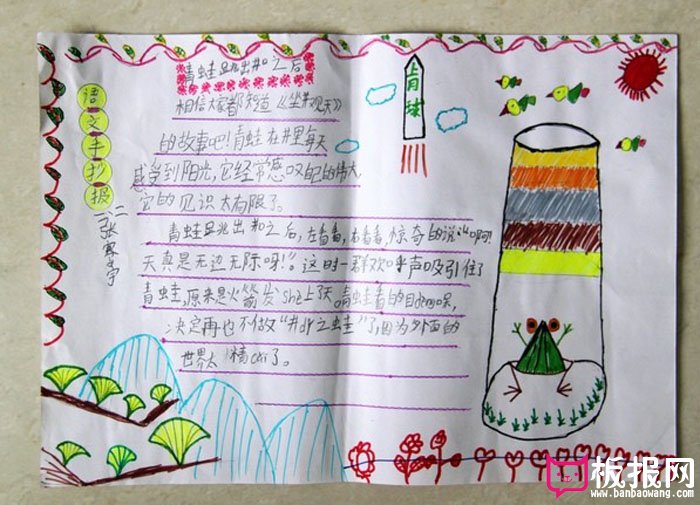 语文手抄报
二、二
张
宇
青蛙跳出井之后
相信大家都知道《坐井观天》
的故事吧!青蛙在井里每天
感受到阳光,它经常感叹自己的伟大,
它的见识太有限了。
青蛙跳出井口之后,左看看,右看看,惊奇的说:“啊!
天真是无边无际呀!”。这时一群欢呼声吸引住了
青蛙,原来是火箭发she上了天。青蛙看的目deng口呆,
决定再也不做“井dǐ之蛙”了,因为外面的
世界太精cǎi了。
月球
板报网
www.banbaowang.com